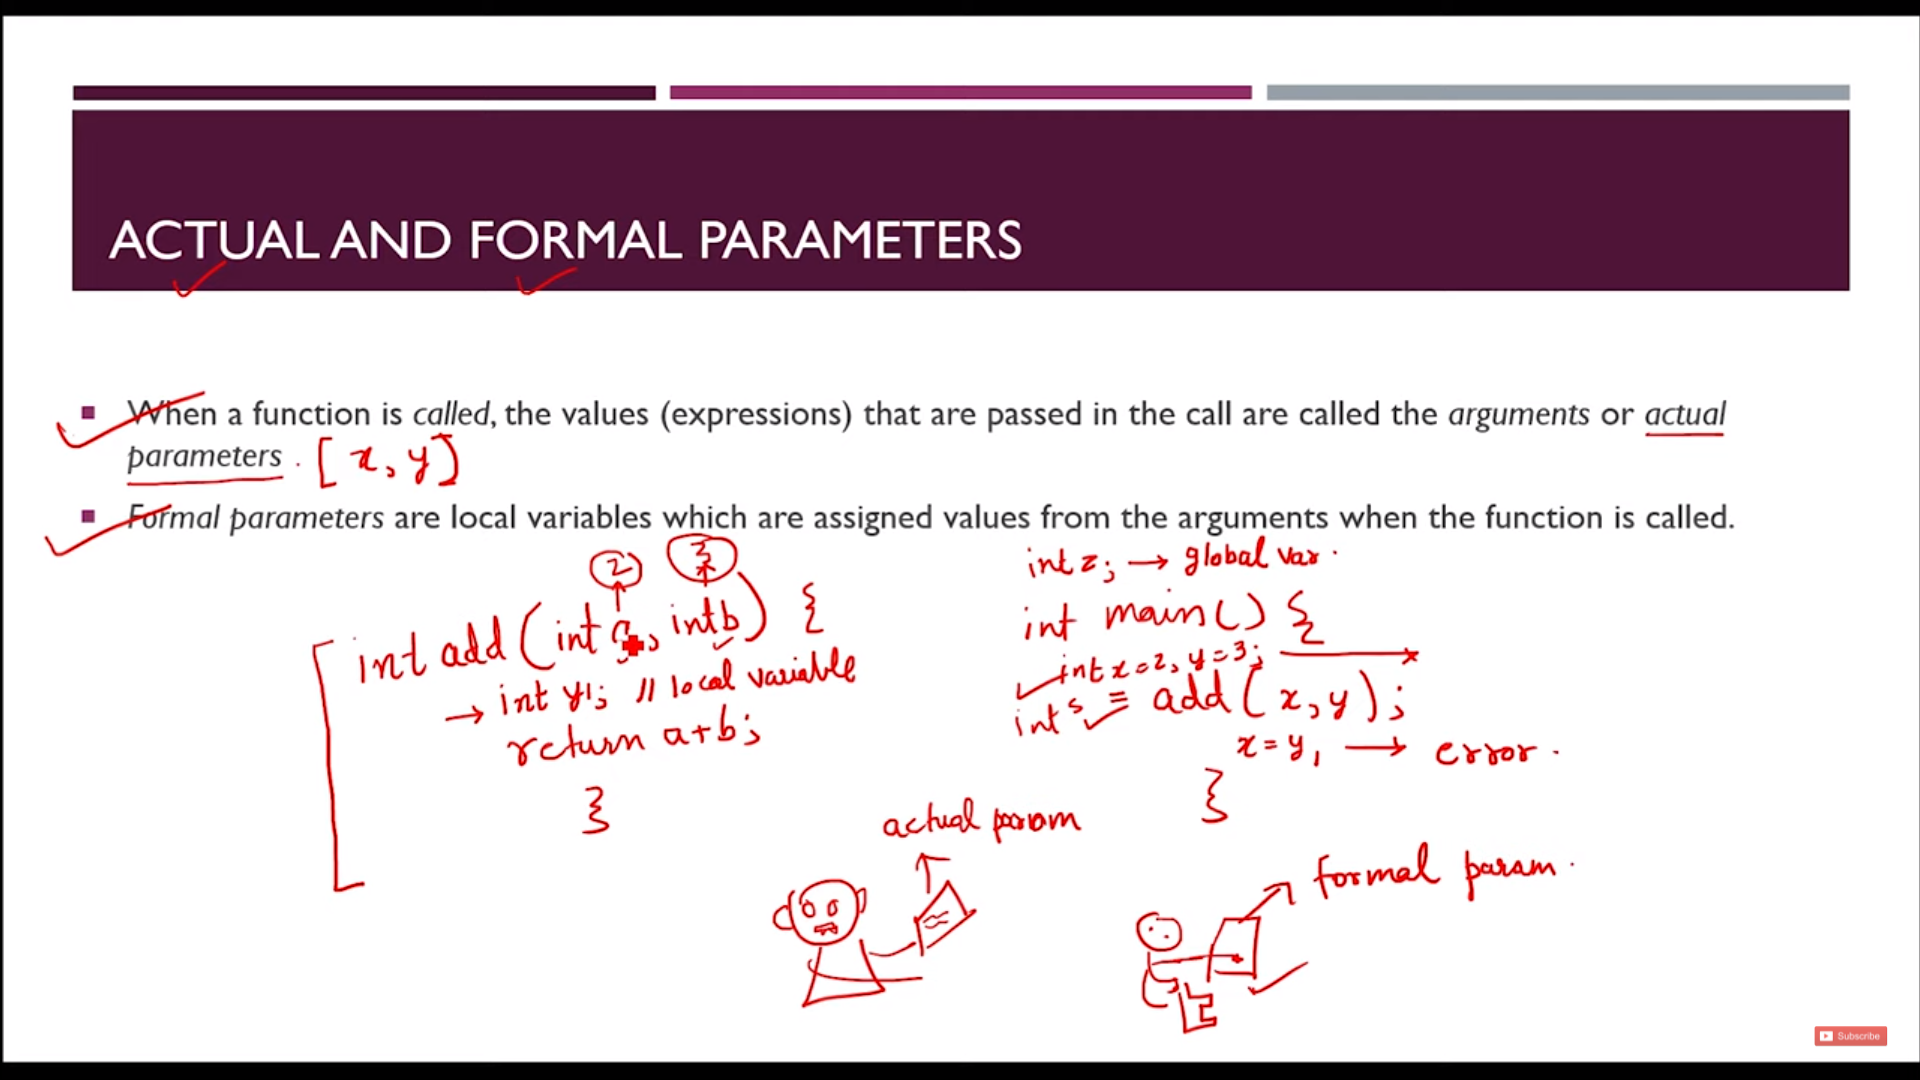 ACTUAL AND FORMAL PARAMETERS
When a function is called, the values (expressions) that are passed in the call are called the arguments or actual
parameters. [x, y]
Formal parameters are local variables which are assigned values from the arguments when the function is called.
2 3
int add (int a, int b) {
→ int y1; // local variable
return a+b;
}
int z; → global var.
int main() {
int x=2, y=3;
int s = add (x, y);
x = y1 → error.
}
actual param
formal param.
Subscribe